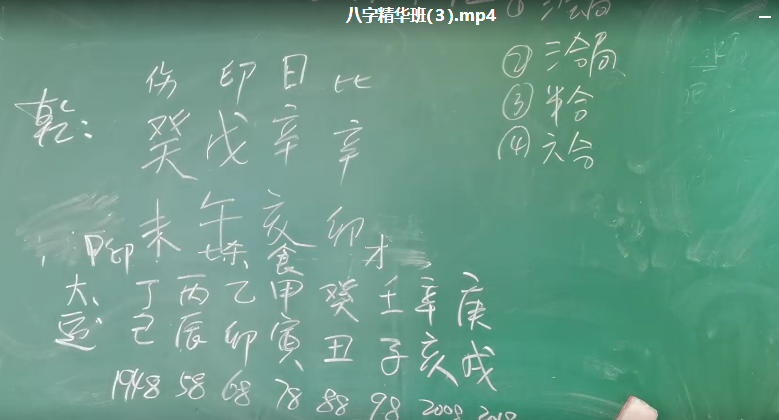 八字精华班(3).mp4
① 三会局
② 三合局
③ 半合
④ 六合
伤 印 日 比
乾: 癸 戊 辛 辛
未 午 亥 卯
印 杀 食 才
大运: 丁 丙 乙 甲 癸 壬 辛 庚
巳 辰 卯 寅 丑 子 亥 戌
1948 58 68 78 88 98 2008 2018